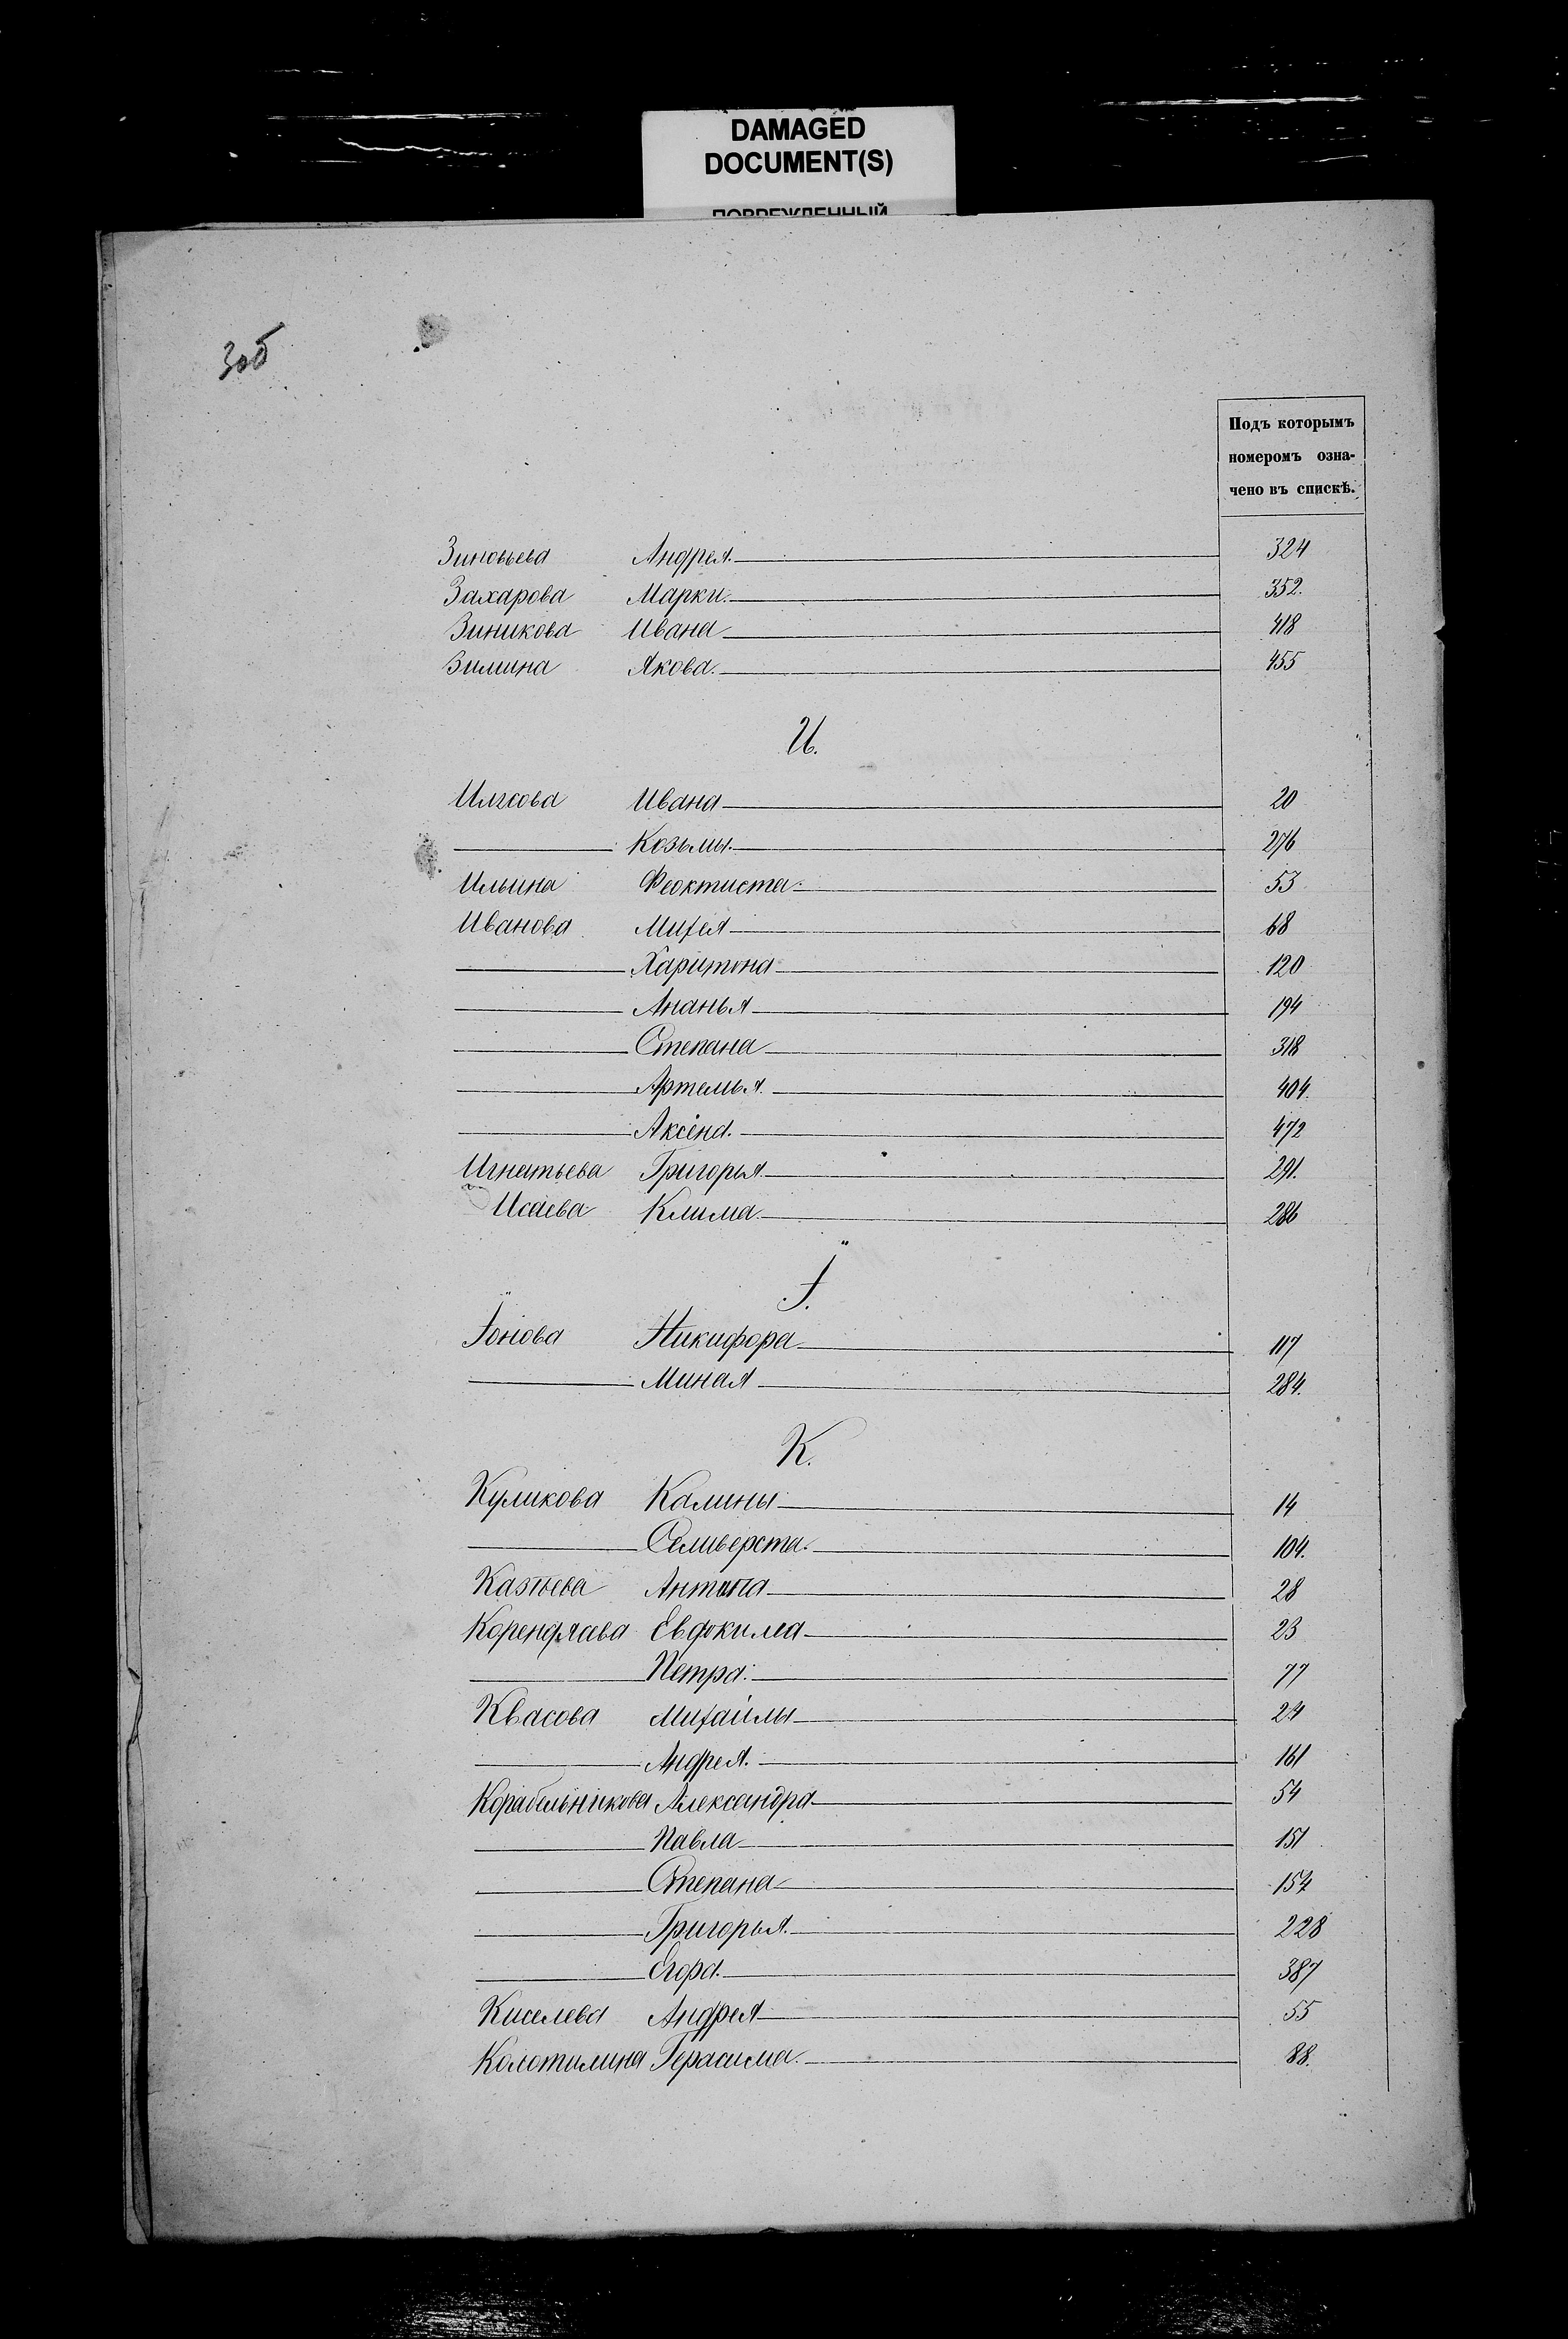 DAMAGED
DOCUMENT(S)
ПОВРЕЖДЕННЫЙ
3об
Подъ которымъ
номеромъ озна-
чено въ спискѣ.
Зиновьева Андрея. 324
Захарова Марки. 352.
Зиникова Ивана 418
Зимина Якова. 455
И.
Ивана 20
Козьмы. 276
Ильина Феоктиста. 53
Иванова Михея 68
Харитона 120
Ананья 194
Степана 318
Артемья. 404.
Аксёна. 472
Игнатьева Григорья. 291.
Исаева Клима. 286
І.
Іонова Никифора 117
Миная 284.
К.
Куликова Калины 14
Селиверста. 104.
Антипа 28
Корендясава Евдокима 23
Петра. 77
Квасова Михайлы 24
Андрея. 161
Корабельникова Александра 54
Павла 151
Степана 154
Григорья. 228
Егора. 387
Киселева Андрея 55
Колотилина Герасима. 88.